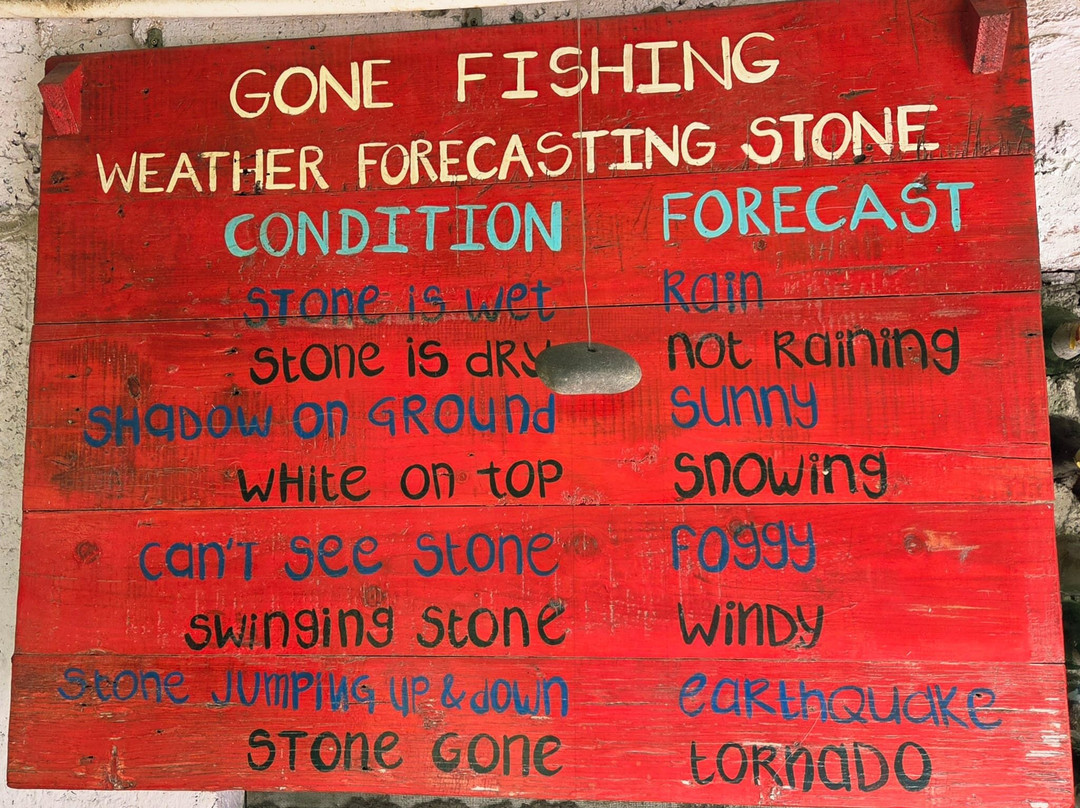 GONE FISHING
WEATHER FORECASTING STONE
CONDITION FORECAST
STONE is wet Rain
Stone is dRy not Raining
SHadow on GROUnd sunny
wHite on top snowing
can't see stone Foggy
swinging stone winDy
stone JUMPING UP & down eaRtHQUake
STone Gone toRnaDO